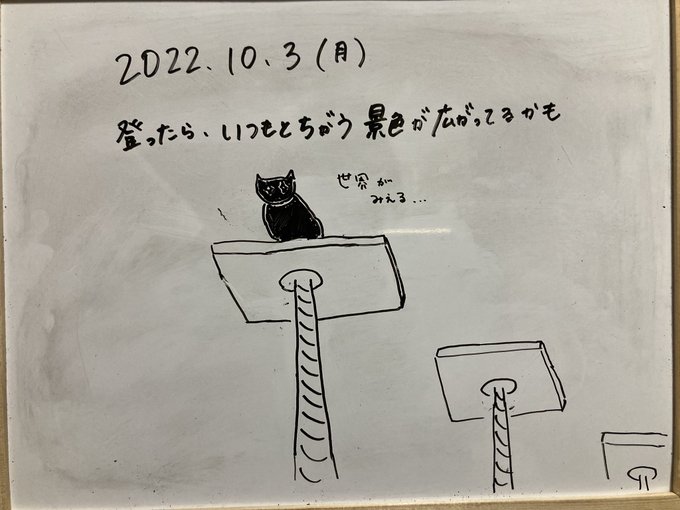 2022.10.3(月)
登ったら、いつもとちがう景色が広がってるかも
世界が
みえる...